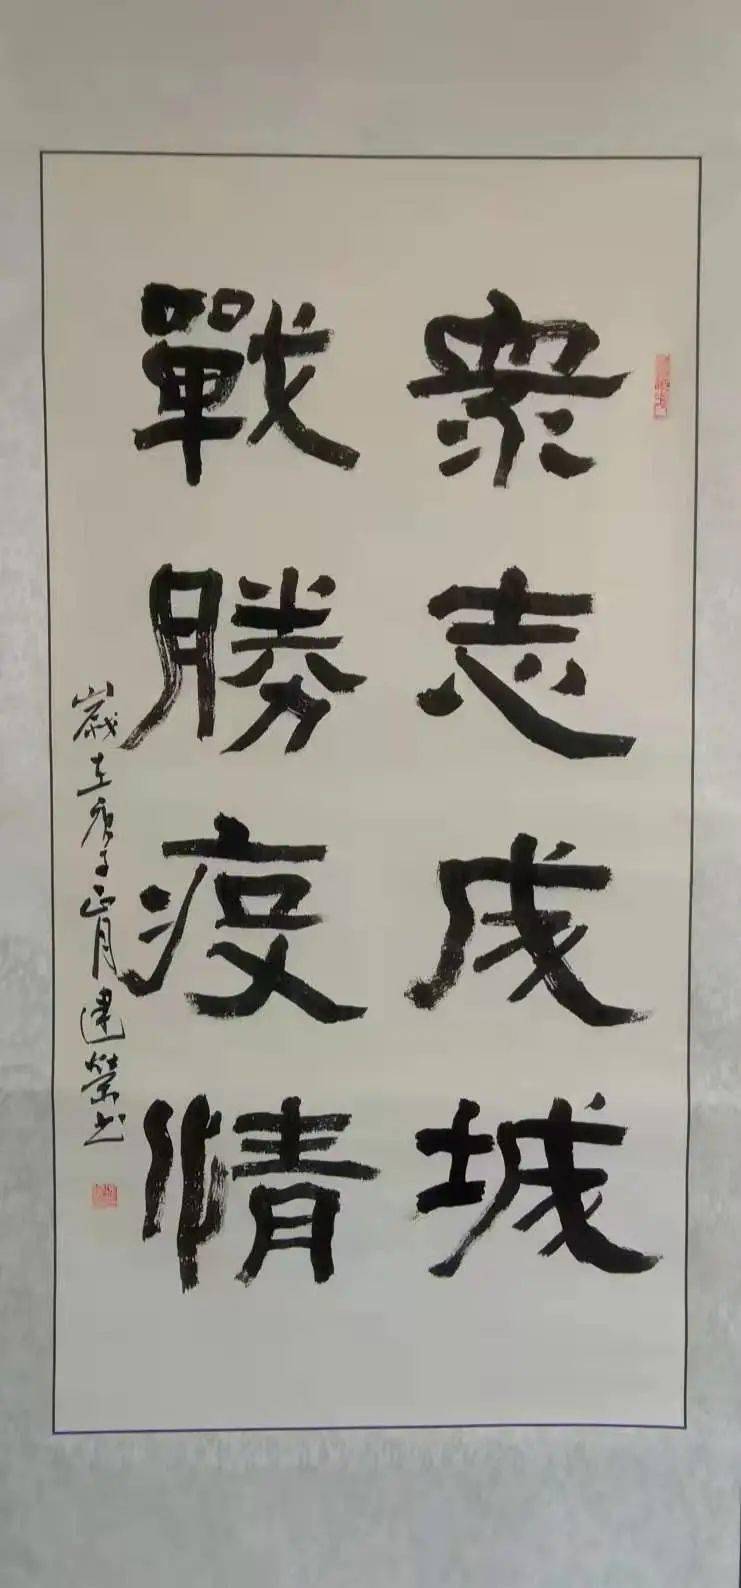 衆志成城
戰勝疫情
歲在庚子正月建榮书